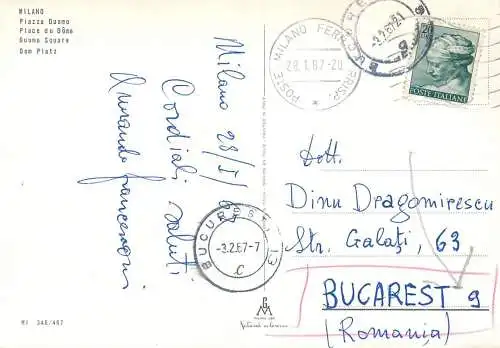 MILANO
Piazza Duomo
Place du Dôme
Doum Square
Dom Platz
Milano 28/I/67
Cordiali saluti
POSTE MILANO FERR. CORRISP.
28.1.67-20
BUCUREȘTI
-3.2.67
POSTE ITALIANE
Dott.
Dinu Dragomirescu
Str. Galați, 63
BUCAREST 9
(Romania)
BUCUREȘTI 13
-3.2.67-7
C
MI 346/467